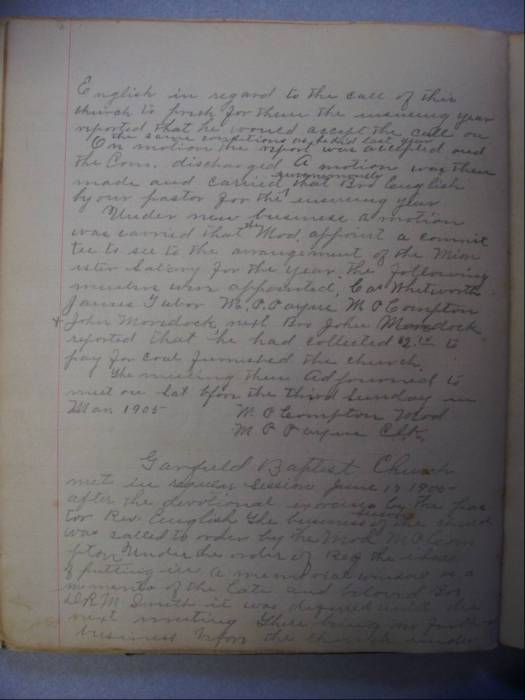 English in regard to the call of this
church to preach for them the ensuing year
reported that he would accept the call on
the same conditions as he did last year
On motion the report was accepted and
the Com. discharged A motion was then
unanimously
made and carried that Bro English
be our pastor for the ensuing year
Under new business a motion
was carried that the Mod. appoint a commit
tee to see to the arrangement of the Min
ister Salary for the year. the following
members were appointed, Cas Whitworth
James Tabor W. P. Payne M P Compton
John Mordock, next Bro John Mordock
reported that he had collected to
pay for coal furnished the church.
The meeting then Adjourned to
meet on Sat before the third Sunday in
Mar. 1905
M. P Compton Mod
M. P Payne Clk.
Garfield Baptist Church
met in regular Session June 17 1905
after the devotional exercises by the pas
tor Rev. English The business of the church
was called to order by the Mod. M. P. Com
pton Under the order of Reg the idea
of putting in a memorial window as a
memento of the late and beloved Bro
D. R. M. Smith it was defered until the
next meeting There being no further
business before the church under